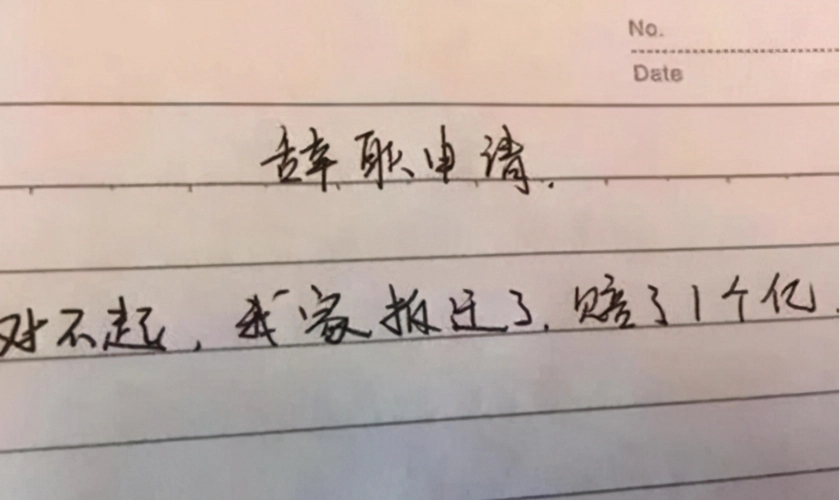 No.
Date
辞职申请.
对不起, 我家拆迁了, 赔了1个亿.